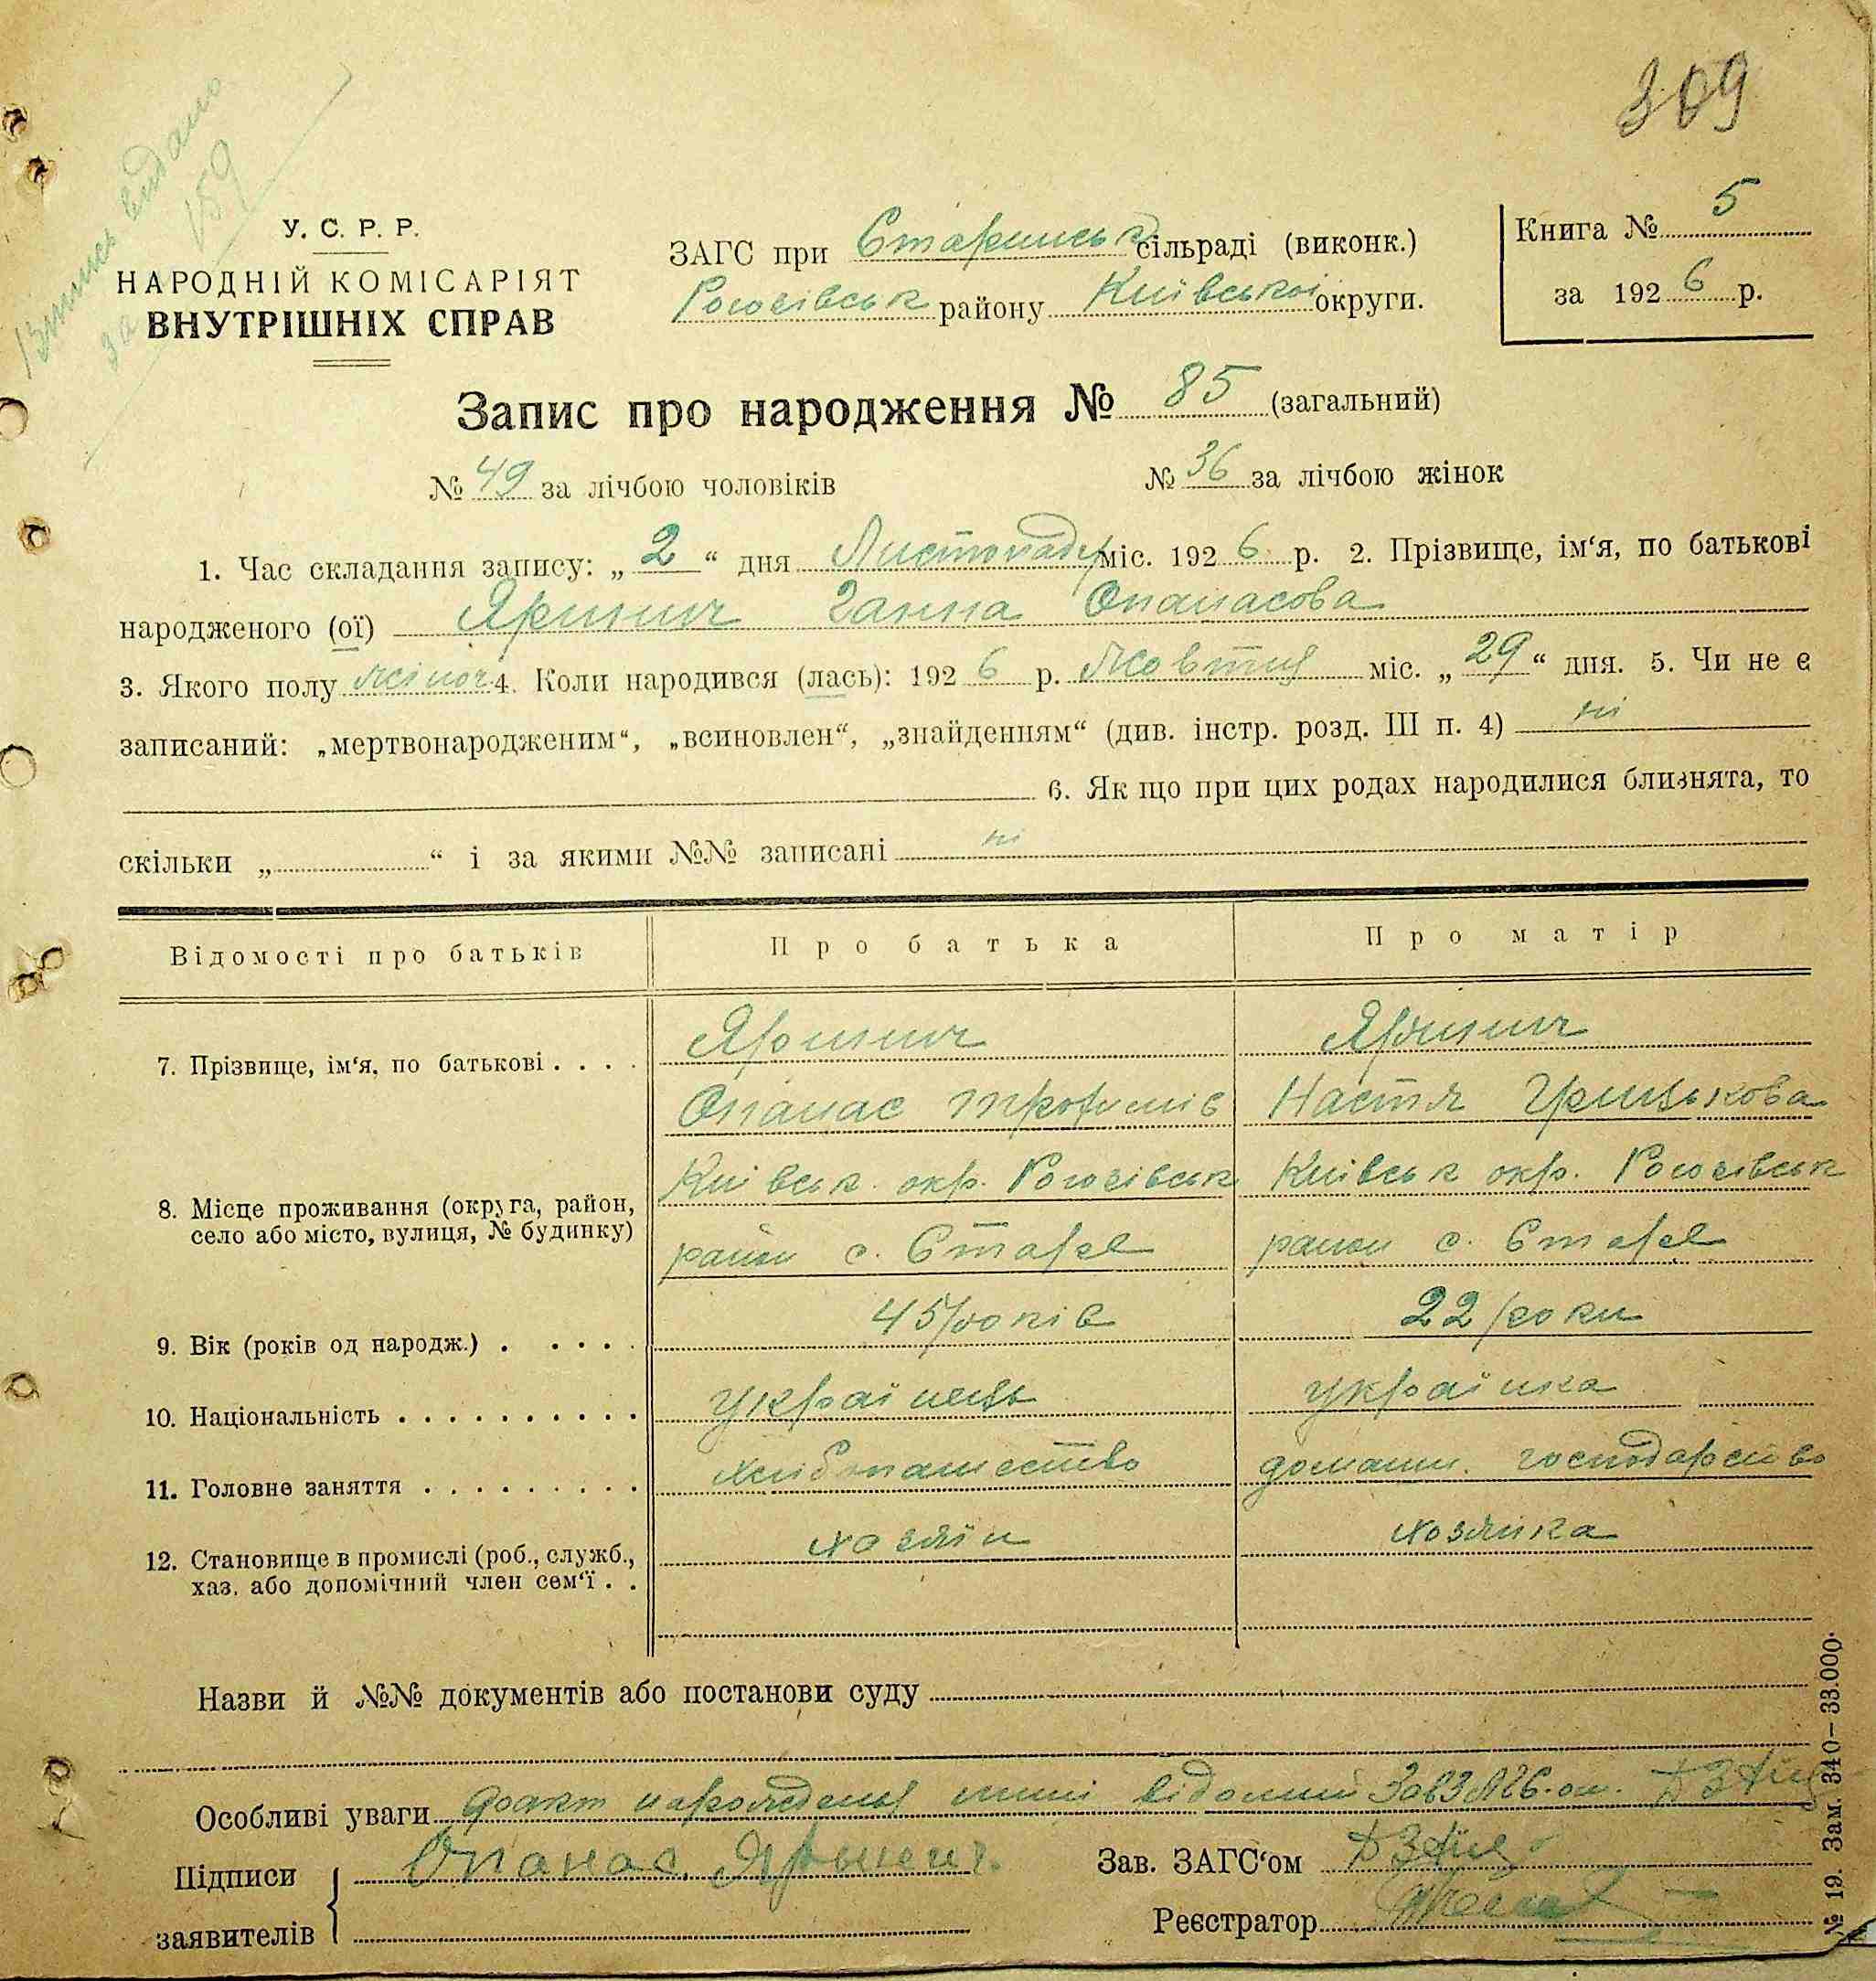 309
Витись видано
за 159
У. С. Р. Р.
НАРОДНІЙ КОМІСАРІЯТ
ВНУТРІШНІХ СПРАВ
ЗАГС при Старинськ сільраді (виконк.)
Рогозівськ району Київської округи.
Книга № 5
за 1926 р.
Запис про народження № 85 (загальний)
№ 49 за лічбою чоловіків № 36 за лічбою жінок
1. Час складання запису: „2“ дня Листопаду міс. 1926 р. 2. Прізвище, ім‘я, по батькові
народженого (ої) Яринич Ганна Опанасова
3. Якого полу жіноч 4. Коли народився (лась): 1926 р. Жовтня міс. „29“ дня. 5. Чи не є
записаний: „мертвонародженим“, „всиновлен“, „знайденням“ (див. інстр. розд. III п. 4) ні
6. Як що при цих родах народилися близнята, то
скільки „ “ і за якими №№ записані ні
Відомості про батьків Про батька Про матір
7. Прізвище, ім‘я, по батькові . . . . Яринич Яринич
Опанас Трофимів Настя Грицькова
8. Місце проживання (округа, район,
село або місто, вулиця, № будинку)
Київськ. окр. Рогозівськ Київськ окр. Рогозівськ
район с. Старе район с. Старе
9. Вік (років од народж.) . . . . . 45 років 22 роки
10. Національність . . . . . . . . . . українець українка
11. Головне заняття . . . . . . . . . хлібопашество домашн. господарство
12. Становище в промислі (роб., служб.,
хаз. або допомічний член сем‘ї . .
хозяїн хозяйка
Назви й №№ документів або постанови суду
Особливі уваги факт народження мині відомий
Підписи
заявителів
Опанас Яринич.
Зав. ЗАГС‘ом
Реєстратор
№ 19. Зам. 340–33.000.